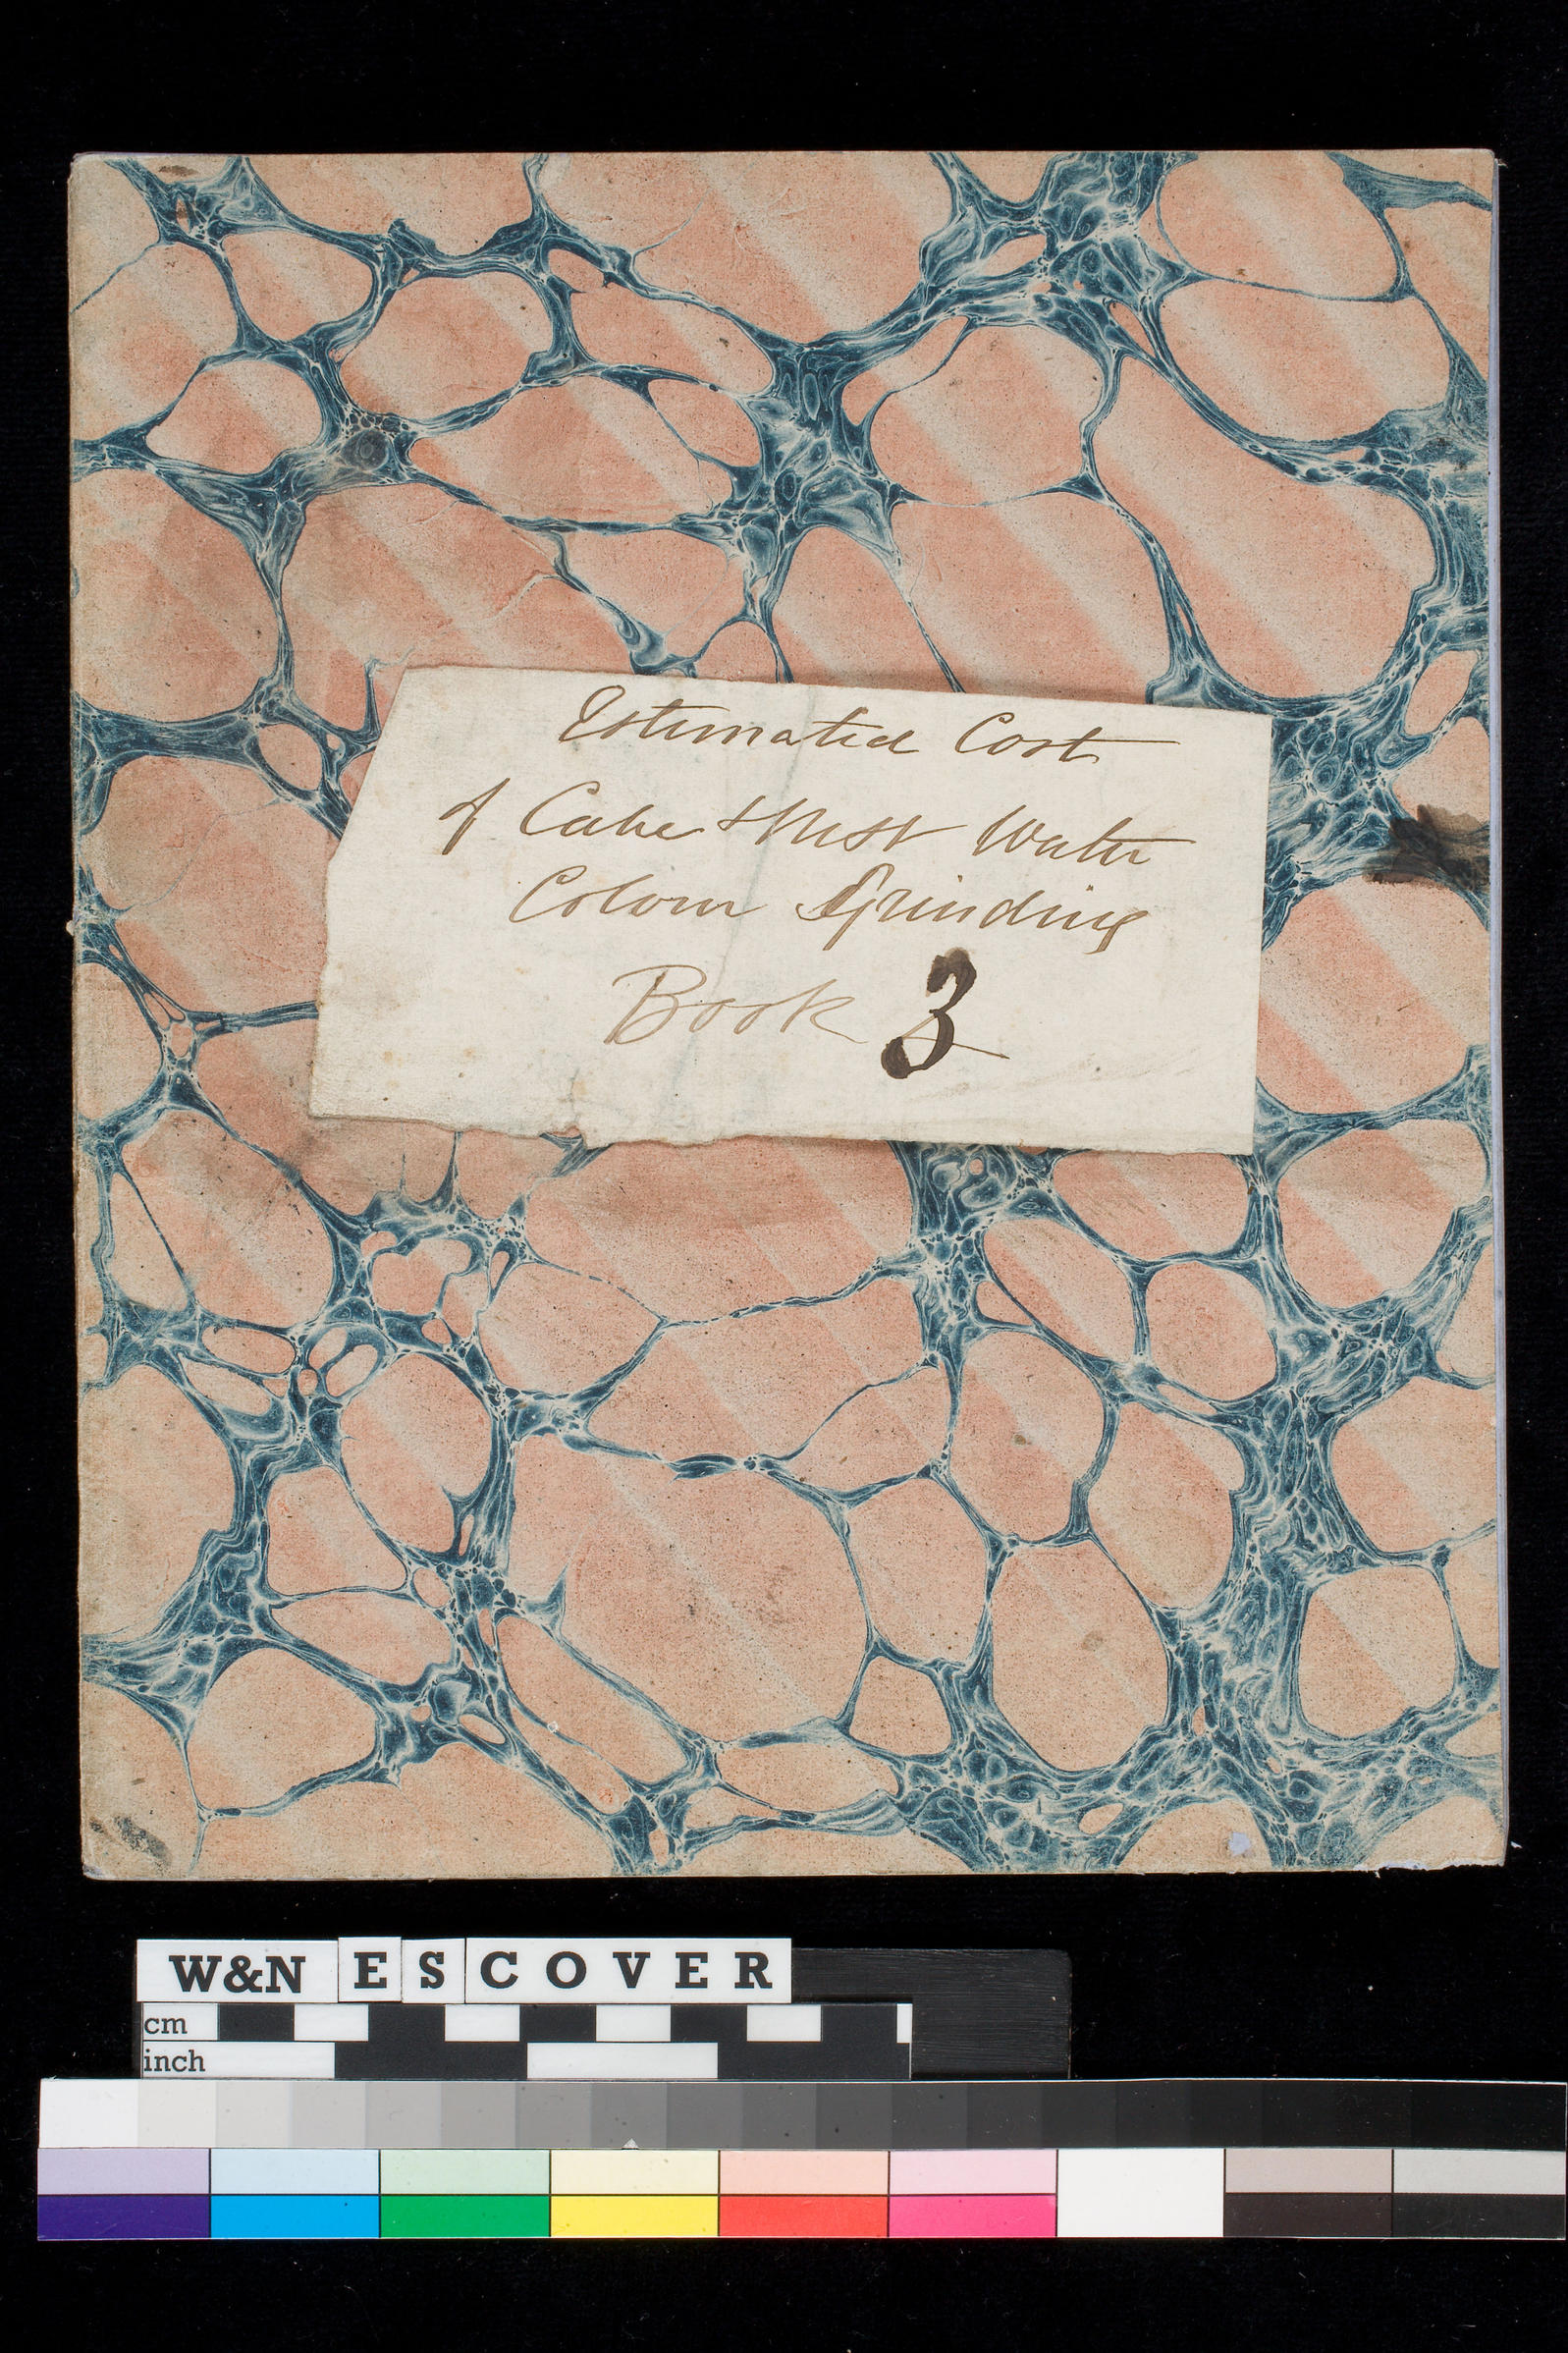 Estimated Cost
of Cake & Moist Water
Colour Grinding
Book 3
W&N ES COVER
cm
inch